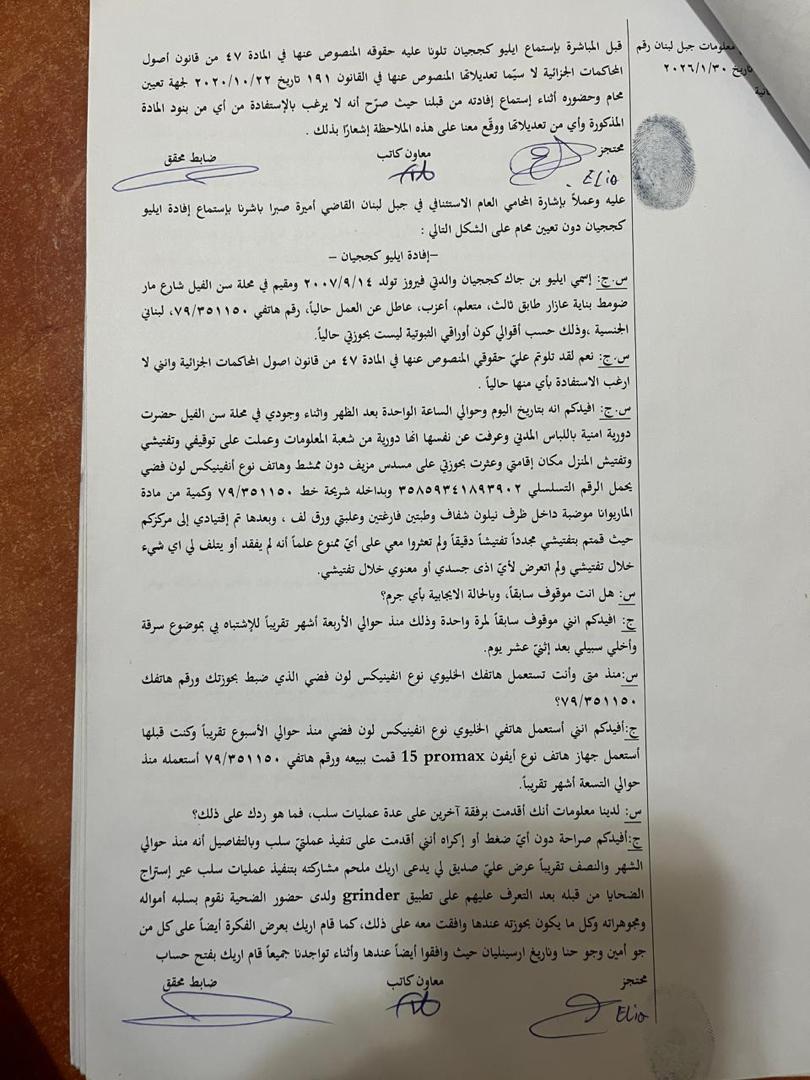 معلومات جبل لبنان رقم
تاريخ ٢٠٢٦/١/٣٠
قبل المباشرة بإستماع ايليو كججيان تلونا عليه حقوقه المنصوص عنها في المادة ٤٧ من قانون أصول
المحاكمات الجزائية لا سيّما تعديلاتها المنصوص عنها في القانون ١٩١ تاريخ ٢٠٢٠/١٠/٢٢ لجهة تعيين
محام وحضوره أثناء إستماع إفادته من قبلنا حيث صرّح أنه لا يرغب بالإستفادة من أي من بنود المادة
المذكورة وأي من تعديلاتها ووقّع معنا على هذه الملاحظة إشعارًا بذلك .
محتجز معاون كاتب ضابط محقق
عليه وعملاً بإشارة المحامي العام الاستئنافي في جبل لبنان القاضي أميرة صبرا باشرنا بإستماع إفادة ايليو
كججيان دون تعيين محام على الشكل التالي :
–إفادة ايليو كججيان –
س.ج: إسمي ايليو بن جاك كججيان والدتي فيروز تولد ٢٠٠٧/٩/١٤ ومقيم في محلة سن الفيل شارع مار
ضومط بناية عازار طابق ثالث، متعلم، أعزب، عاطل عن العمل حالياً، رقم هاتفي ٧٩/٣٥١١٥٠، لبناني
الجنسية ،وذلك حسب أقوالي كون أوراقي الثبوتية ليست بحوزتي حالياً.
س.ج: نعم لقد تلوتم عليّ حقوقي المنصوص عنها في المادة ٤٧ من قانون اصول المحاكمات الجزائية وانني لا
ارغب الاستفادة بأي منها حالياً .
س.ج: افيدكم انه بتاريخ اليوم وحوالي الساعة الواحدة بعد الظهر واثناء وجودي في محلة سن الفيل حضرت
دورية امنية باللباس المدني وعرفت عن نفسها انها دورية من شعبة المعلومات وعملت على توقيفي وتفتيشي
وتفتيش المنزل مكان إقامتي وعثرت بحوزتي على مسدس مزيف دون ممشط وهاتف نوع أنفينيكس لون فضي
يحمل الرقم التسلسلي ٣٥٨٥٩٣٤١٨٩٣٩٠٢ وبداخله شريحة خط ٧٩/٣٥١١٥٠ وكمية من مادة
الماريوانا موضبة داخل ظرف نيلون شفاف وطبتين فارغتين وعلبتي ورق لف ، وبعدها تم إقتيادي إلى مركزكم
حيث قمتم بتفتيشي مجدداً تفتيشاً دقيقاً ولم تعثروا معي على أيّ ممنوع علماً أنه لم يفقد أو يتلف لي اي شيء
خلال تفتيشي ولم اتعرض لأيّ اذى جسدي أو معنوي خلال تفتيشي.
س: هل انت موقوف سابقاً، وبالحالة الايجابية بأي جرم؟
ج: افيدكم انني موقوف سابقاً لمرة واحدة وذلك منذ حوالي الأربعة أشهر تقريباً للإشتباه بي بموضوع سرقة
وأخلي سبيلي بعد إثنيّ عشر يوم.
س:منذ متى وأنت تستعمل هاتفك الخليوي نوع انفينيكس لون فضي الذي ضبط بحوزتك ورقم هاتفك
٧٩/٣٥١١٥٠؟
ج:أفيدكم انني أستعمل هاتفي الخليوي نوع انفينيكس لون فضي منذ حوالي الأسبوع تقريباً وكنت قبلها
أستعمل جهاز هاتف نوع أيفون 15 promax قمت ببيعه ورقم هاتفي ٧٩/٣٥١١٥٠ أستعمله منذ
حوالي التسعة أشهر تقريباً.
س: لدينا معلومات أنك أقدمت برفقة آخرين على عدة عمليات سلب، فما هو ردك على ذلك؟
ج:أفيدكم صراحة دون أيّ ضغط أو إكراه أنني أقدمت على تنفيذ عمليّ سلب وبالتفاصيل أنه منذ حوالي
الشهر والنصف تقريباً عرض عليّ صديق لي يدعى اريك ملحم مشاركته بتنفيذ عمليات سلب عبر إستراج
الضحايا من قبله بعد التعرف عليهم على تطبيق grinder ولدى حضور الضحية نقوم بسلبه أمواله
ومجوهراته وكل ما يكون بحوزته عندها وافقت معه على ذلك، كما قام اريك بعرض الفكرة أيضاً على كل من
جو أمين وجو حنا وناريغ ارسينليان حيث وافقوا أيضاً عندها وأثناء تواجدنا جميعاً قام اريك بفتح حساب
محتجز معاون كاتب ضابط محقق
Elio